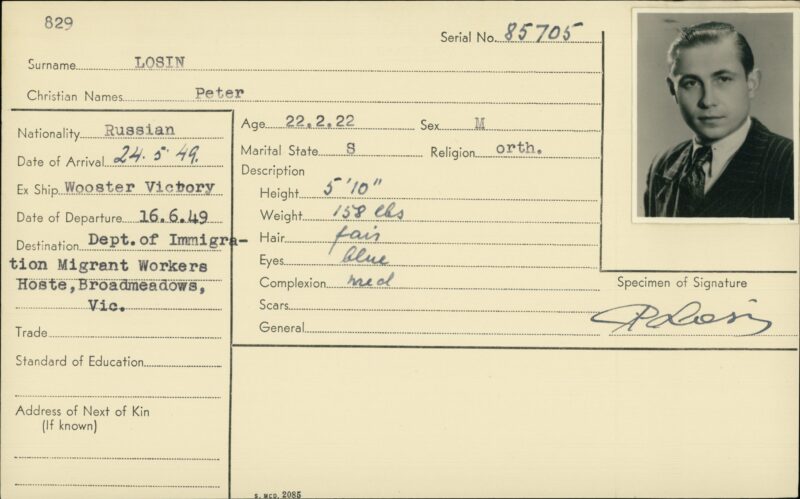 829
Serial No. 85705
Surname LOSIN
Christian Names Peter
Nationality Russian
Date of Arrival 24.5.49.
Ex Ship Wooster Victory
Date of Departure 16.6.49
Destination Dept. of Immigra-
tion Migrant Workers
Hoste, Broadmeadows,
Vic.
Trade
Standard of Education
Address of Next of Kin
(If known)
Age 22.2.22 Sex M
Marital State S Religion orth.
Description
Height 5'10"
Weight 158 lbs
Hair fair
Eyes blue
Complexion med
Scars
General
Specimen of Signature
P Losin
S. MCD. 2085